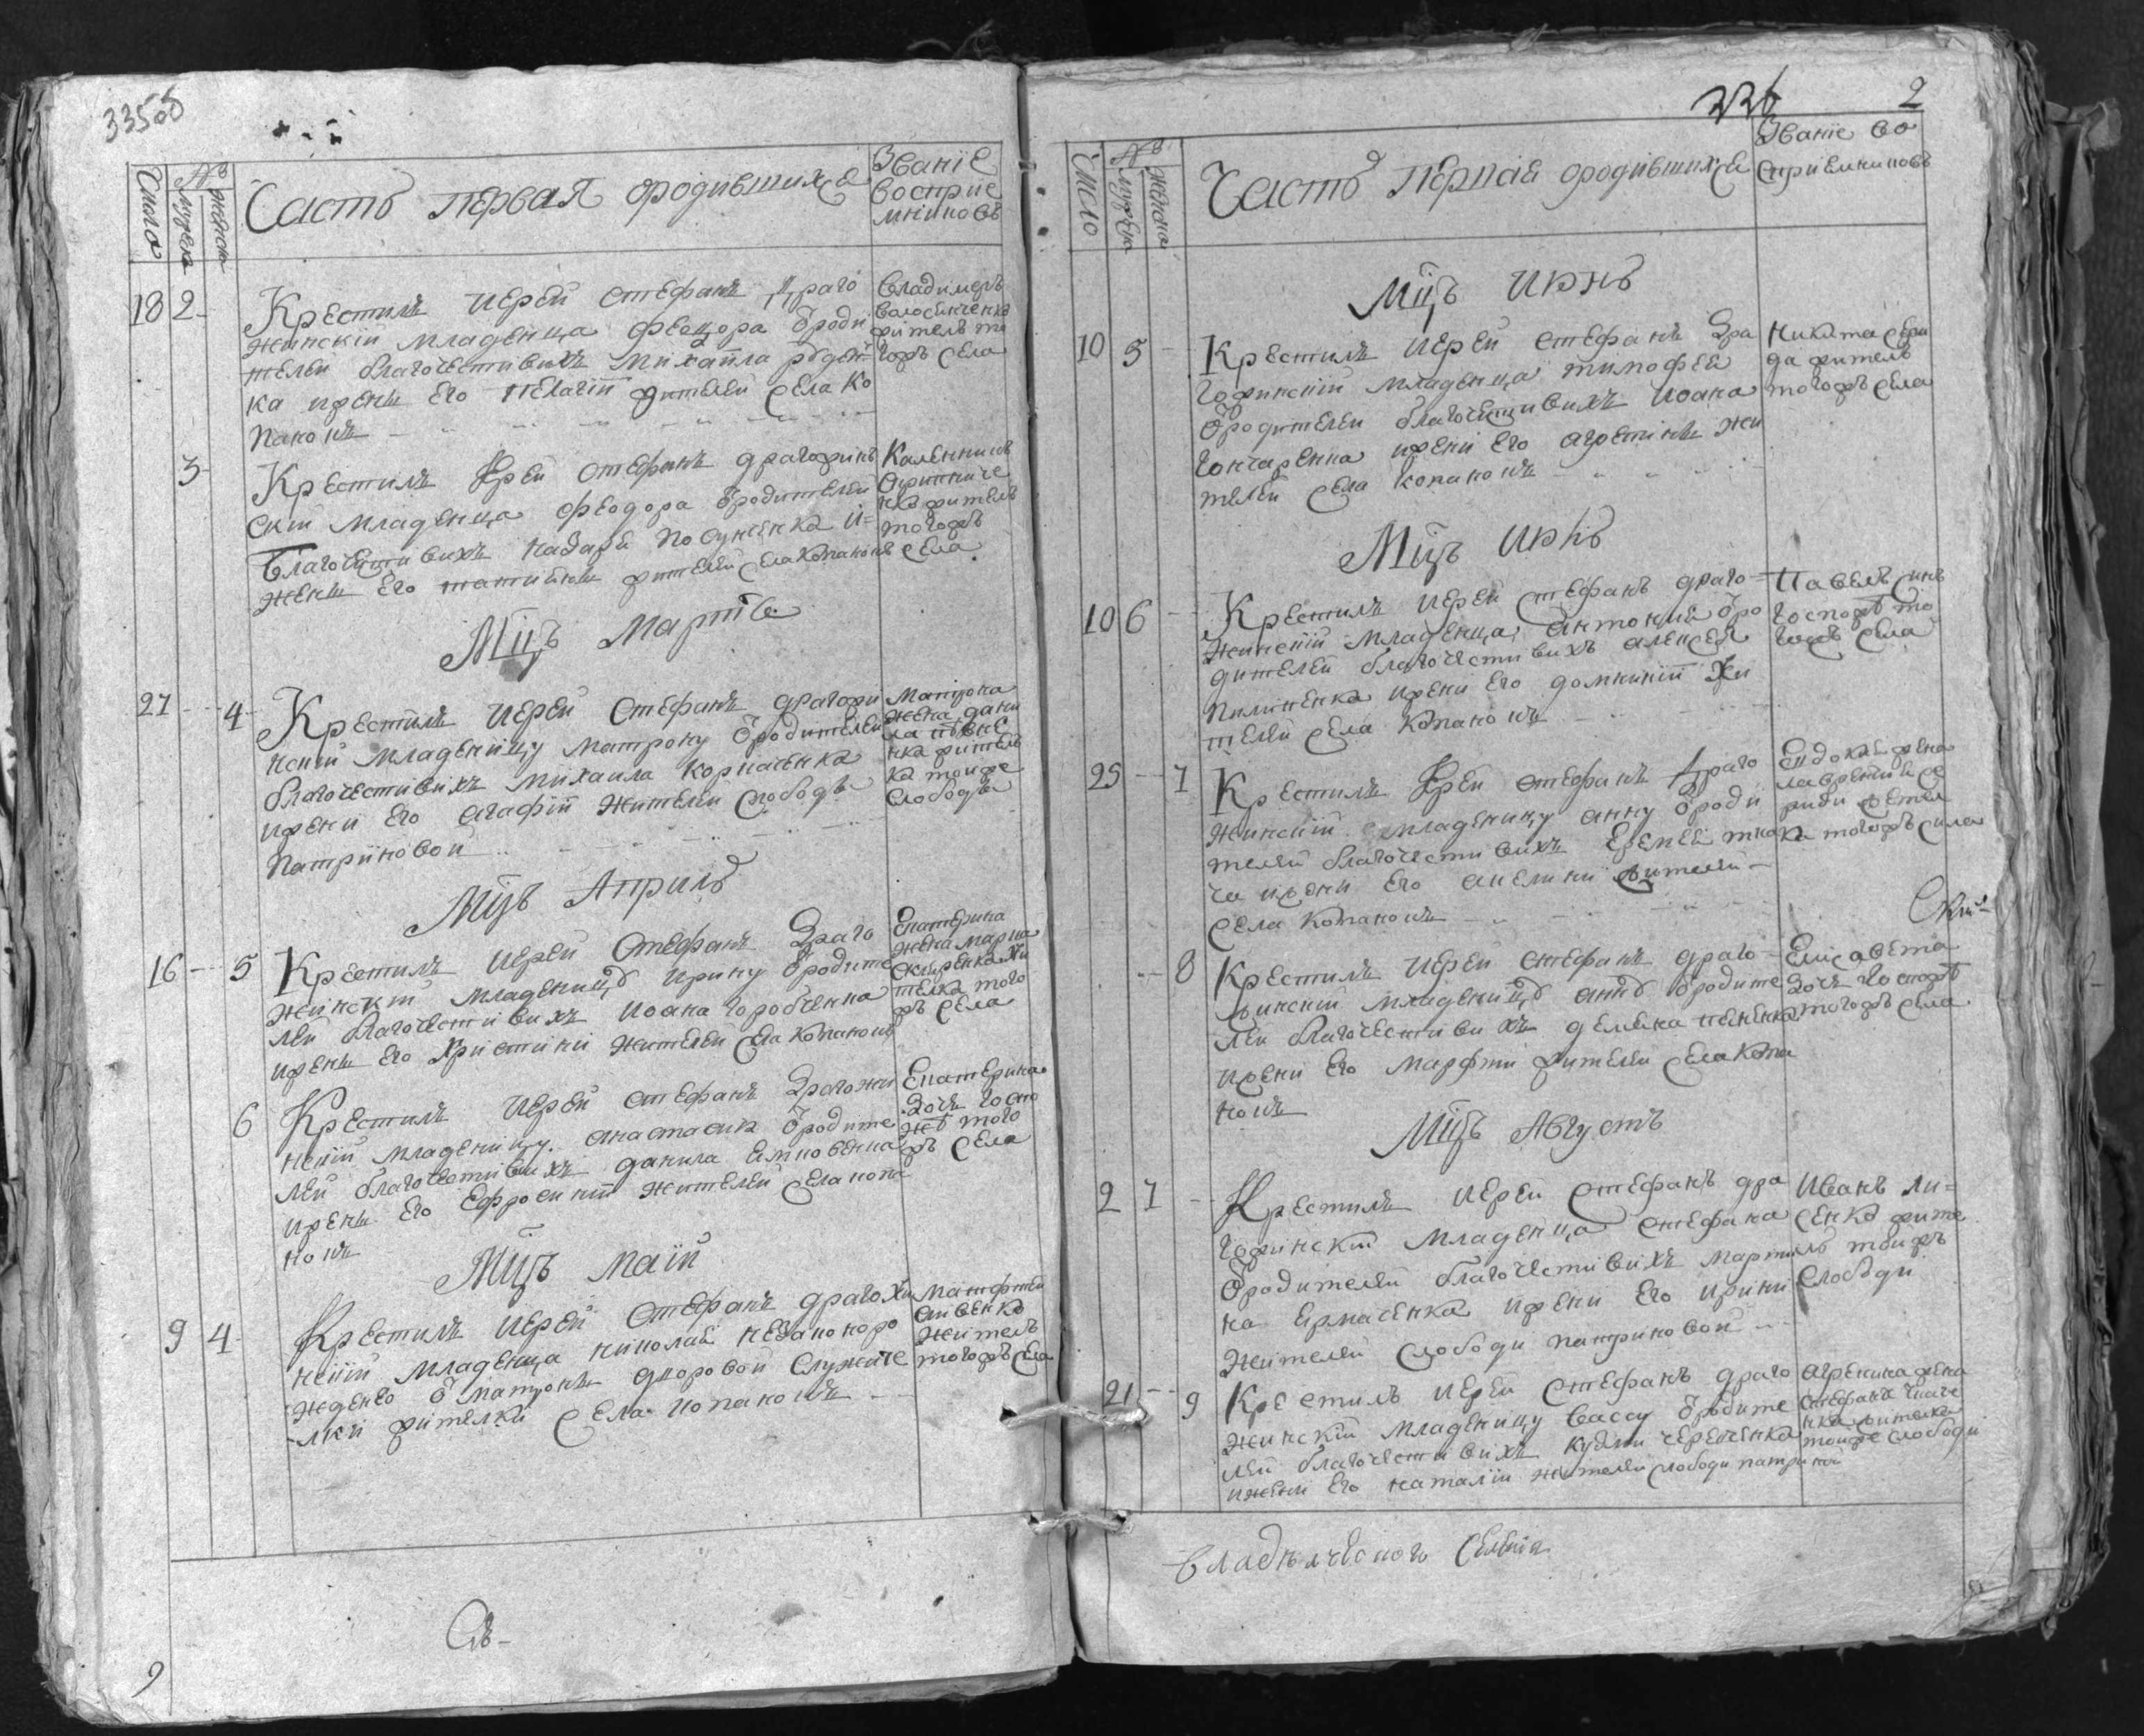 335об
Число
№
мужска
женска
Часть первая ѡродившихся
Званїе
восприе
мниковъ
18 2
Крестилъ иерей стефанъ Драго
жинскїй младенца феодора ѿроди
телей благочестивихъ михаила
ка ижены его пелагїй жителей села Ко
пановъ
Владимеръ
житель то
гожъ села
3
Крестилъ иерей стефанъ драгожин
скїй младенца феодора ѿродителей
Благочестивихъ назарѣ и
жены его татияны жителей села копановъ
житель
тогожъ
села
Мцъ Мартъ
27 4
Крестилъ иерей стефанъ драгожи
нскїй младеницу матрону ѿродителей
благочестивихъ михаила корнѣенка
ижени его агафїй жителей слободы
патрїковой
Матрона
жена дани
ла
нка жител
ка тойже
слободы
Мцъ Априлъ
16 5
Крестилъ иерей стефанъ Драго
жинскїй младеницѹ ирину ѿродите
лей благочестивихъ иоана горобченка
ижены его христини жителей села копановъ
Екатерина
жена марка
жи
телка того
жъ села
6
Крестилъ иерей стефанъ Драгожи
нскїй младеницу анастасия ѿродите
лей благочестивихъ данила
ижены его ефросинїй жителей села копа
новъ
Екатерина
дочь госпо
жѣ того
жъ села
Мцъ маїй
9 4
Крестилъ иерей стефанъ драгожи
нскїй младенца николай незаконоро
жденго ѿ матроны дворовой служите
лки жителки села копановъ
Матфей
сивенко
житель
тогожъ села
Съ
9
336
2
Число
№
мужска
женска
Часть первая ѡродившихся
Званїе во
сприемниковъ
Мцъ июнь
10 5
Крестилъ иерей стефанъ Дра
гожинскїй младенца тимофей
ѿродителей благочестивихъ иоана
гончаренка ижени его агрепины жи
телей села копановъ
Никита
да житель
тогожъ села
Мцъ июль
10 6
Крестилъ иерей стефанъ драго
жинскїй младенца антонїй ѿро
дителей благочестивихъ алексея
пилипенка ижени его домникїй жи
телей села копановъ
Павелъ синъ
госпожѣ то
гожъ села
25 7
Крестилъ иерей стефанъ Драго
жинскїй младеницу анну ѿроди
телей благочестивихъ еремей тка
ча ижени его акелини жителей
села копановъ
Евдокия жена
лаврентия се
риди жител
ка тогожъ села
Скій
8
Крестилъ иерей стефанъ драго
жинскїй младеницѹ аннѹ ѿродите
лей благочестивихъ демяна
ижени его марфїи жителей села копа
новъ
Елисавета
дочь госпожѣ
тогожъ села
Мцъ Августъ
2 7
Крестилъ иерей стефанъ дра
гожинскїй младенца стефана
ѿродителей благочестивихъ марти
на ермаченка ижени его ирини
жителей слободи патриковой
Иванъ ли=
сенко жите
ль тоижъ
слободи
21 9
Крестилъ иерей стефанъ драго
жинскїй младеницу вассу ѿродите
лей благочестивихъ кузми
ижени его наталїи жителей слободи патрикой
Агрепина жена
стефана ткаче
нка жителка
тойже слободи
владѣлческого селенїя